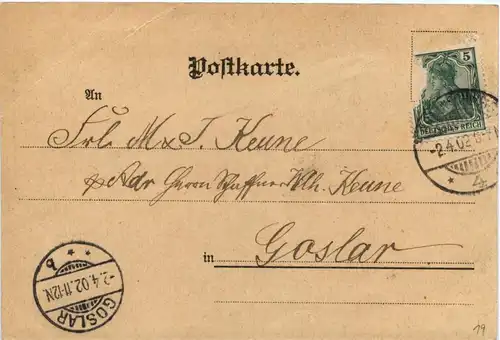 Postkarte.
5
DEUTSCHES REICH
An
Frls. M & T. Keune
Adr Herrn Schaffner Wlh. Keune
-2.4.02
* 4
in Goslar
GOSLAR
-2.4.02.11-12N.
* b *
19